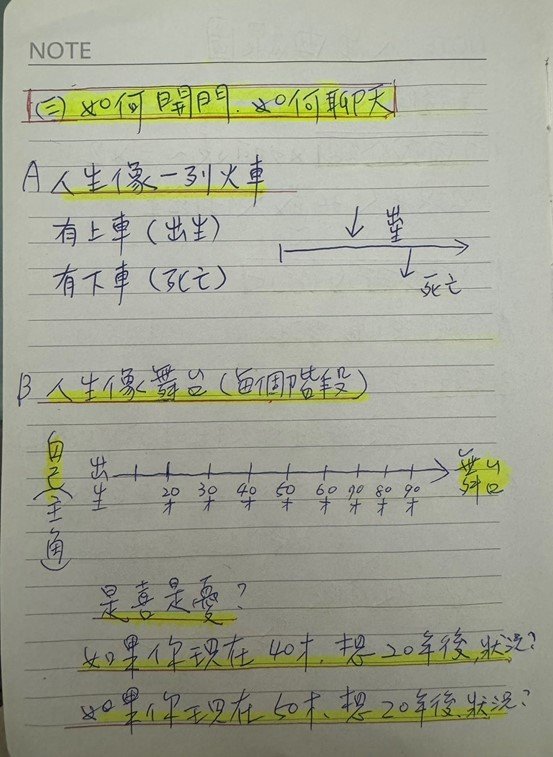 NOTE
(二) 如何開門. 如何聊天
A 人生像一列火車
有上車 (出生)
出生
有下車 (死亡)
死亡
B 人生像舞台 (每個階段)
自己 (主角)
出生
20才 30才 40才 50才 60才 70才 80才 90才
舞台
是喜是憂?
如果你現在 40才. 想 20年後, 狀況?
如果你現在 50才. 想 20年後. 狀況?